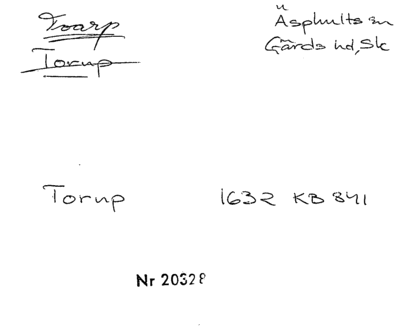 Toarp
Äsphults sn
Torup
Gärds hd, Sk
Torup 1632 KB 841
Nr 20328